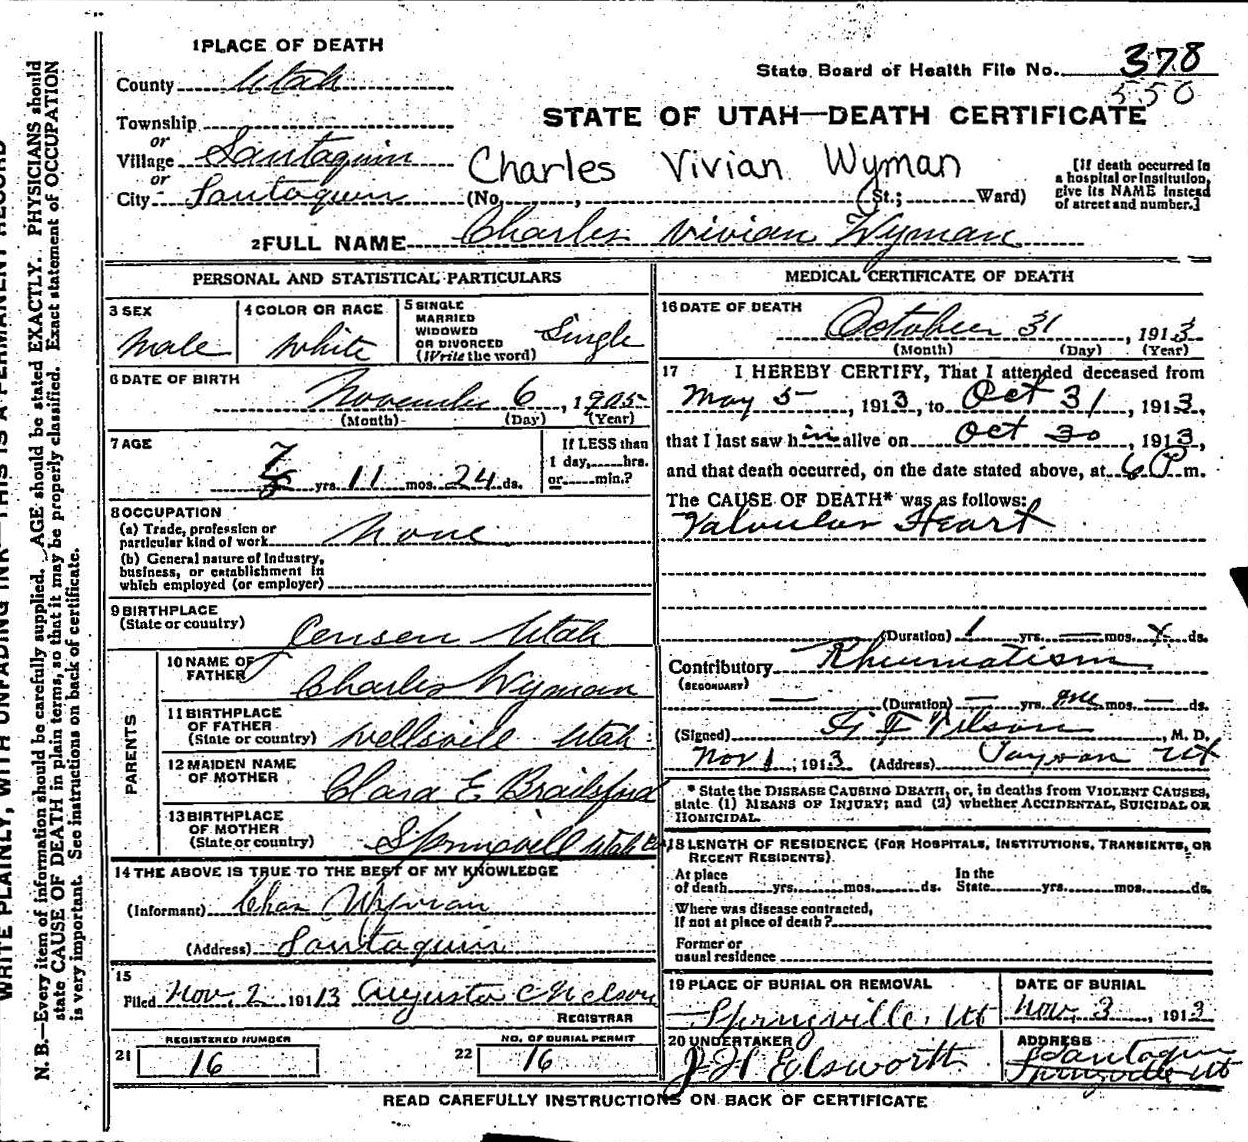 1 PLACE OF DEATH
County Utah
State Board of Health File No. 378
550
STATE OF UTAH—DEATH CERTIFICATE
Township
or
Village Santaquin
or
City Santaquin
Charles Vivian Wyman
(No. , (St.; Ward)
[If death occurred in
a hospital or institution,
give its NAME instead
of street and number.]
2 FULL NAME Charles Vivian Wyman
PERSONAL AND STATISTICAL PARTICULARS
3 SEX
Male
4 COLOR OR RACE
White
5 SINGLE
MARRIED
WIDOWED
OR DIVORCED
(Write the word)
Single
6 DATE OF BIRTH
November 6, 1905
(Month) (Day) (Year)
7 AGE
7 yrs. 11 mos. 24 ds.
If LESS than
1 day, hrs.
or min.?
8 OCCUPATION
(a) Trade, profession or
particular kind of work None
(b) General nature of Industry,
business, or establishment in
which employed (or employer)
9 BIRTHPLACE
(State or country)
Jensen Utah
PARENTS
10 NAME OF
FATHER
Charles Wyman
11 BIRTHPLACE
OF FATHER
(State or country) Wellsvill Utah
12 MAIDEN NAME
OF MOTHER
Clara E Brailsford
13 BIRTHPLACE
OF MOTHER
(State or country) Springvill Utah
14 THE ABOVE IS TRUE TO THE BEST OF MY KNOWLEDGE
(Informant) Chas Wyman
(Address) Santaquin
15
Filed Nov. 2 191 13 Augusta C Nelson
REGISTRAR
REGISTERED NUMBER
21 16
NO. OF BURIAL PERMIT
22 16
MEDICAL CERTIFICATE OF DEATH
16 DATE OF DEATH
October 31, 1913
(Month) (Day) (Year)
17 I HEREBY CERTIFY, That I attended deceased from
May 5, 1913, to Oct 31, 1913,
that I last saw him alive on Oct 30, 1913,
and that death occurred, on the date stated above, at 6 P m.
The CAUSE OF DEATH* was as follows:
Valvular Heart
(Duration) 1 yrs. — mos. ds.
Contributory Rheumatism
(SECONDARY)
— (Duration) — yrs. one mos. — ds.
(Signed) Wilson, M. D.
Nov 1, 1913 (Address) Payson Ut
* State the DISEASE CAUSING DEATH, or, in deaths from VIOLENT CAUSES,
state (1) MEANS OF INJURY; and (2) whether ACCIDENTAL, SUICIDAL OR
HOMICIDAL.
18 LENGTH OF RESIDENCE (FOR HOSPITALS, INSTITUTIONS, TRANSIENTS, OR
RECENT RESIDENTS).
At place
of death yrs. mos. ds.
In the
State yrs. mos. ds.
Where was disease contracted,
if not at place of death?
Former or
usual residence
19 PLACE OF BURIAL OR REMOVAL
Springville, Ut
DATE OF BURIAL
Nov. 3, 1913
20 UNDERTAKER
J H Elsworth
ADDRESS
Santaquin
Springville Ut
READ CAREFULLY INSTRUCTIONS ON BACK OF CERTIFICATE
WRITE PLAINLY, WITH UNFADING INK—THIS IS A PERMANENT RECORD
N. B.—Every item of information should be carefully supplied. AGE should be stated EXACTLY. PHYSICIANS should
state CAUSE OF DEATH in plain terms, so that it may be properly classified. Exact statement of OCCUPATION
is very important. See instructions on back of certificate.